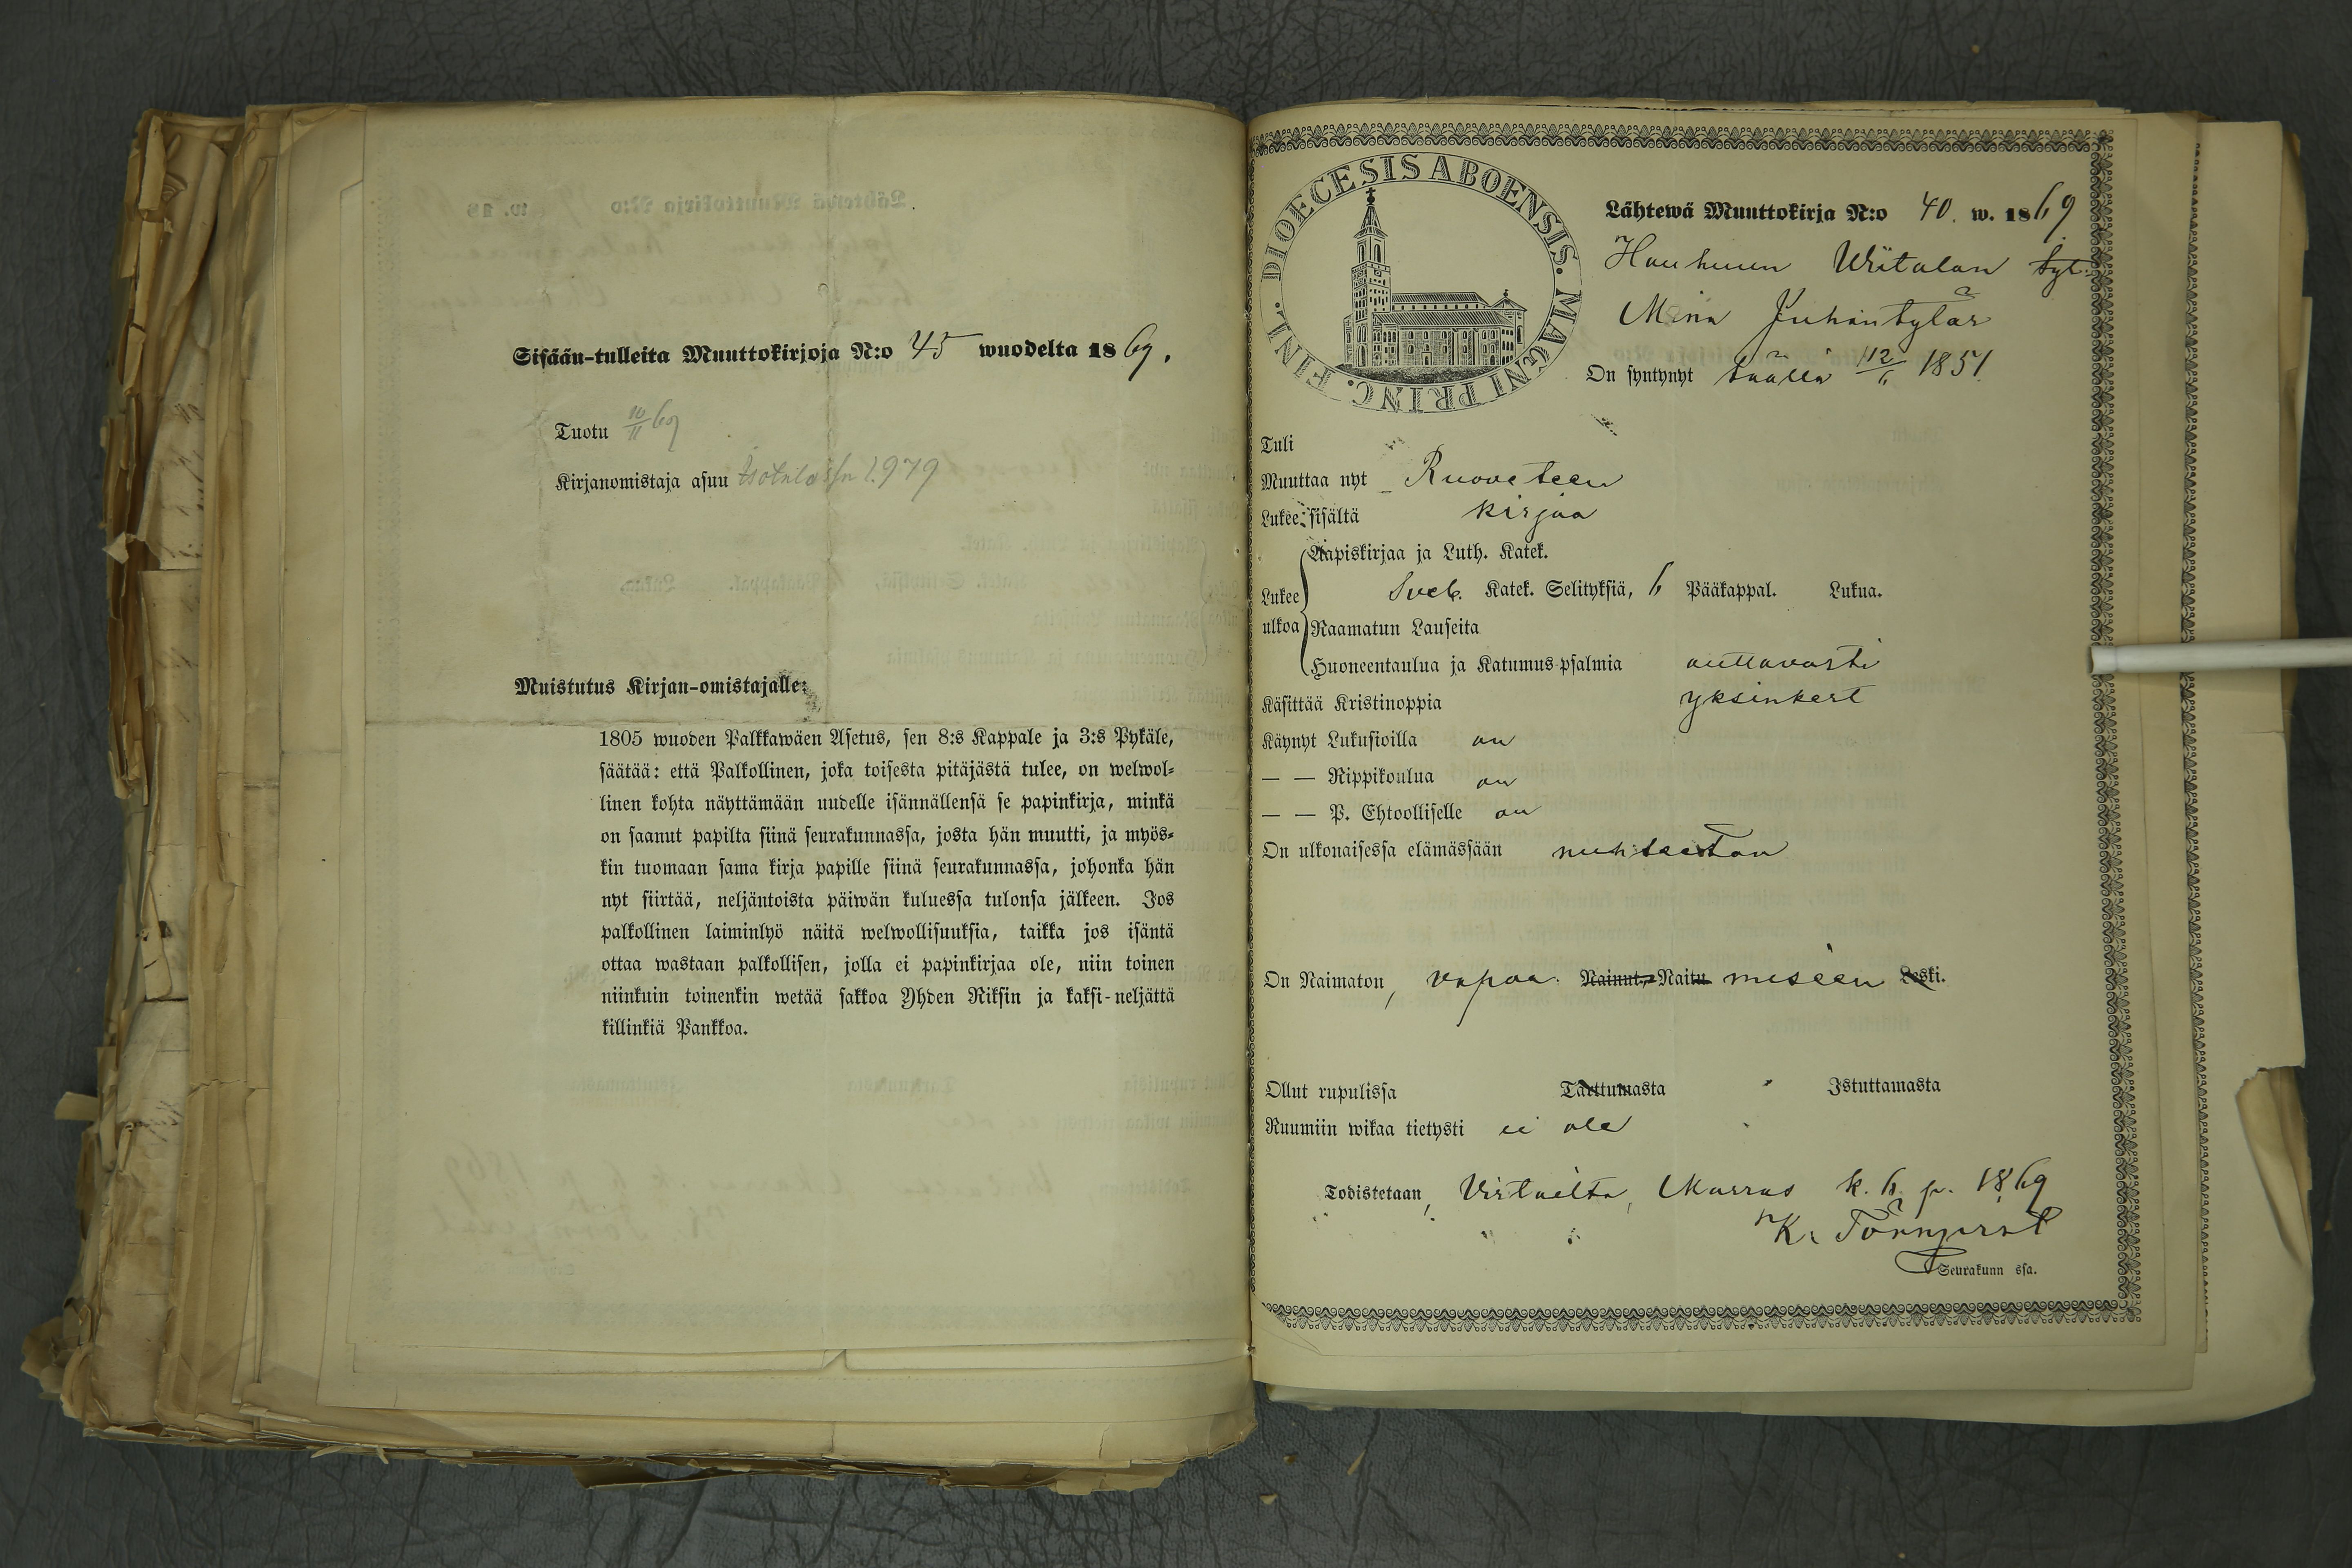 Sisään-tulleita Muuttokirjoja N:o 45 wuodelta 1869.
Tuotu 10/11 69
Kirjanomistaja asuu 1.979
Muistutus Kirjan-omistajalle:
1805 wuoden Palkkawäen Asetus, sen 8:s Kappale ja 3:s Pykäle,
säätää: että Palkollinen, joka toisesta pitäjästä tulee, on welwol-
linen kohta näyttämään uudelle isännällensä se papinkirja, minkä
on saanut papilta siinä seurakunnassa, josta hän muutti, ja myös-
kin tuomaan sama kirja papille siinä seurakunnassa, johonka hän
nyt siirtää, neljäntoista päiwän kuluessa tulonsa jälkeen. Jos
palkollinen laiminlyö näitä welwollisuuksia, taikka jos isäntä
ottaa wastaan palkollisen, jolla ei papinkirjaa ole, niin toinen
niinkuin toinenkin wetää sakkoa Yhden Riksin ja kaksi-neljättä
killinkiä Pankkoa.
DIOECESIS ABOENSIS. MAGNI PRINC. FINL.
Lähtewä Muuttokirja N:o 40. w. 1869
Hauhuun Wiitalan tyt.
Mina Juhantylär
On syntynyt täällä 12/6 1851
Tuli
Muuttaa nyt Ruoveteen
Lukee sisältä kirjaa
Aapiskirjaa ja Luth. Katek.
Lukee Sveb. Katek. Selityksiä, 6 Pääkappal. Lukua.
ulkoa Raamatun Lauseita
Huoneentaulua ja Katumus-psalmia auttavasti
Käsittää Kristinoppia yksinkert
Käynyt Lukusioilla on
— — Rippikoulua on
— — P. Ehtoolliselle on
On ulkonaisessa elämässään nuhteeton
On Naimaton, vapaa. Nainut, Naitu miseen Leski.
Ollut rupulissa Tarttumasta Istuttamasta
Ruumiin wikaa tietysti ei ole
Todistetaan, Virtailta, Marras k. 6 p. 1869
K. Törnqvist
Seurakunn ssa.